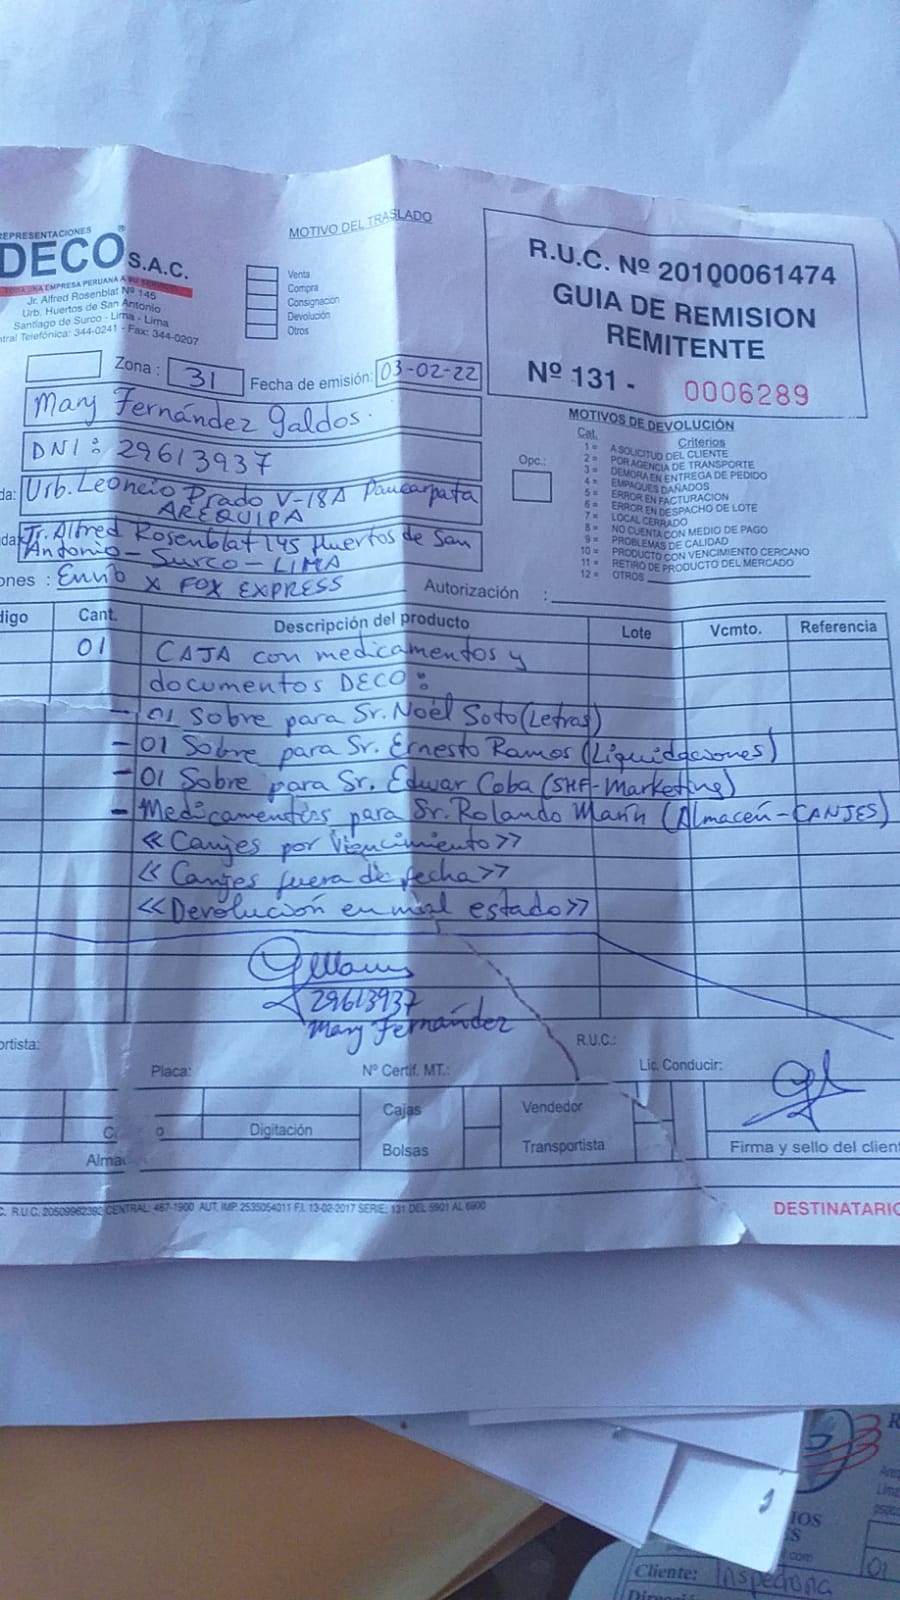 REPRESENTACIONES
DECO S.A.C.
UNA EMPRESA PERUANA A SU SERVICIO
Jr. Alfred Rosenblat Nº 145
Urb. Huertos de San Antonio
Santiago de Surco - Lima - Lima
tral Telefónica: 344-0241 - Fax: 344-0207
MOTIVO DEL TRASLADO
Venta
Compra
Consignación
Devolución
Otros
R.U.C. Nº 20100061474
GUIA DE REMISION
REMITENTE
Nº 131 - 0006289
Zona : 31 Fecha de emisión: 03-02-22
Mary Fernández Galdos.
DNI: 29613937
da: Urb. Leoncio Prado V-18A Paucarpata
AREQUIPA
da: Jr. Alfred Rosenblat 145 Huertos de San
Antonio - Surco - LIMA
ones : Envío x FOX EXPRESS
MOTIVOS DE DEVOLUCIÓN
Cat. Criterios
1 = A SOLICITUD DEL CLIENTE
2 = POR AGENCIA DE TRANSPORTE
3 = DEMORA EN ENTREGA DE PEDIDO
4 = EMPAQUES DAÑADOS
5 = ERROR EN FACTURACION
6 = ERROR EN DESPACHO DE LOTE
7 = LOCAL CERRADO
8 = NO CUENTA CON MEDIO DE PAGO
9 = PROBLEMAS DE CALIDAD
10 = PRODUCTO CON VENCIMIENTO CERCANO
11 = RETIRO DE PRODUCTO DEL MERCADO
12 = OTROS
Opc.:
Autorización :
digo Cant. Descripción del producto Lote Vcmto. Referencia
01 CAJA con medicamentos y
documentos DECO:
- 01 Sobre para Sr. Noel Soto (Letras)
- 01 Sobre para Sr. Ernesto Ramos (Liquidaciones)
- 01 Sobre para Sr. Edwar Coba (SHF-Marketing)
- Medicamentos para Sr. Rolando Marín (Almacén-CANJES)
<<Canjes por Vencimiento>>
<<Canjes fuera de fecha>>
<<Devolución en mal estado>>
29613937
Mary Fernández
ortista: R.U.C.:
Placa: Nº Certif. MT.: Lic. Conducir:
Digitación Cajas Vendedor
Alma Bolsas Transportista Firma y sello del clien
C. R.U.C. 20509962392 CENTRAL: 467-1900 AUT. IMP. 2535054011 F.I. 13-02-2017 SERIE: 131 DEL 5901 AL 6900
DESTINATARIO
Cliente: Inspectora